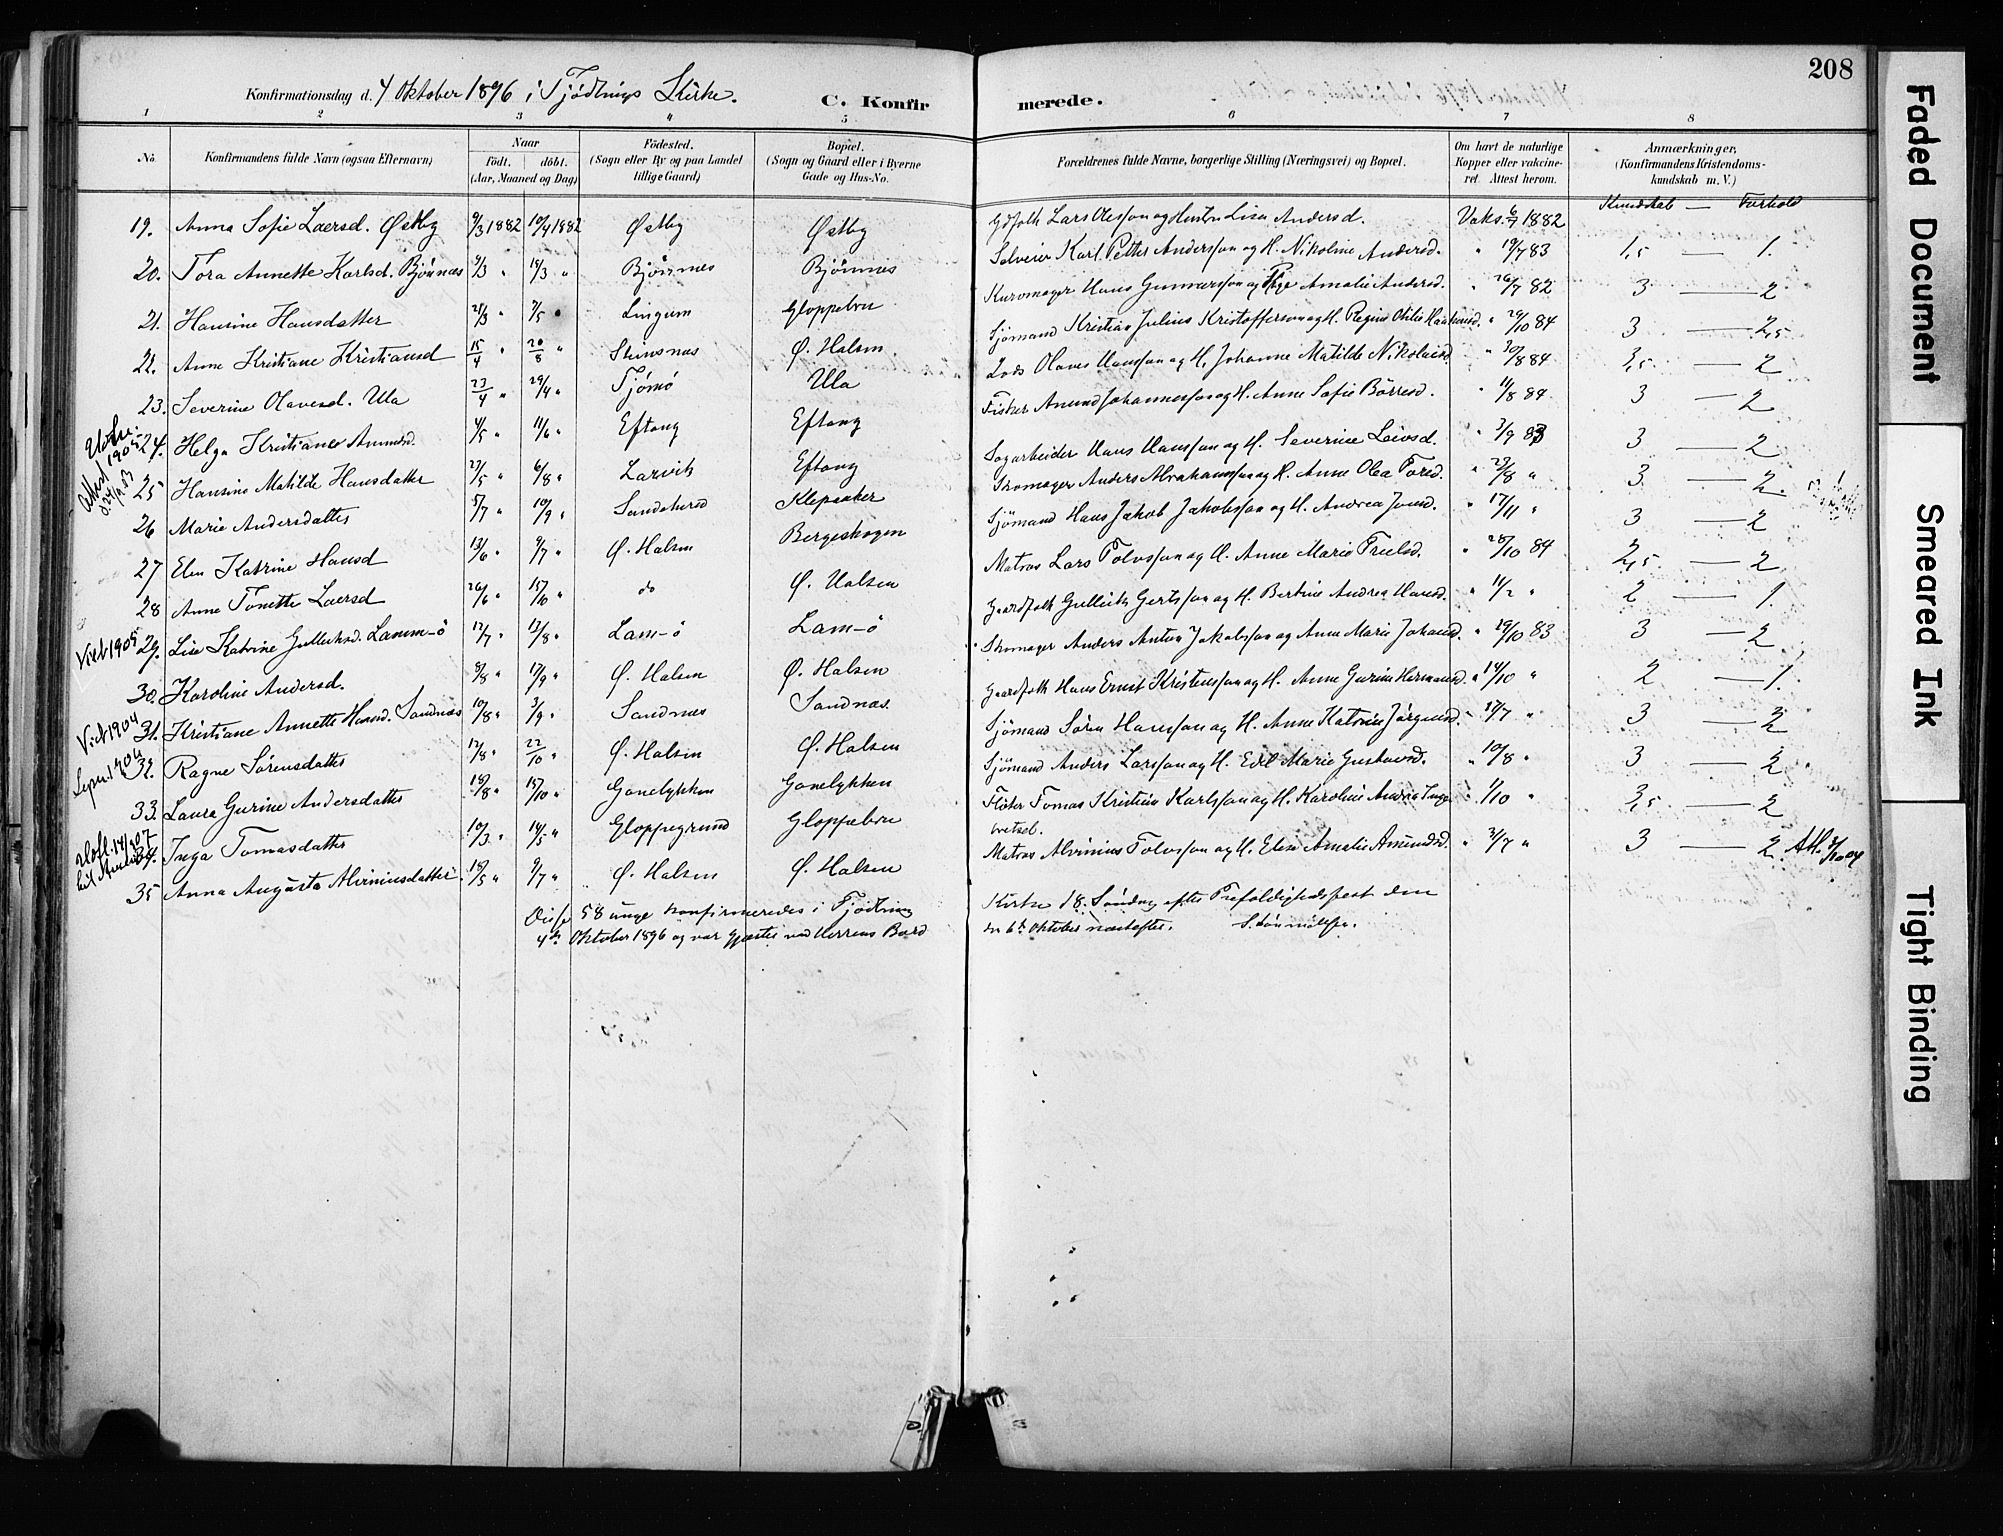 208
Konfirmationsdag d. 4 Oktober 1896 i Tjødlings Kirke. C. Konfirmerede.
1 2 3 4 5 6 7 8
No. Konfirmandens fulde Navn (ogsaa Efternavn) Naar födt. döbt. (Aar, Maaned og Dag) Födested. (Sogn eller By og paa Landet tillige Gaard) Bopæl. (Sogn og Gaard eller i Byerne Gade og Hus-No. Forældrenes fulde Navne, borgerlige Stilling (Næringsvei) og Bopæl. Om havt de naturlige Kopper eller vakcineret. Attest herom. Anmærkninger. (Konfirmandens Kristendomskundskab m. V.)
Kundskab — Forhold
19. Anna Sofie Laersd. Østby 9/3 1882 10/4 1882 Østby Østby Gdfolk Lars Olesson og Hustru Lisa Andersd. Vaks. 6/7 1882
20. Tora Annette Karlsd. Bjønnes 9/3 " 18/3 " Bjønnes Bjønnes Selveier Karl Petter Andersson og H. Nikoline Andersd. " 19/7 83 1,5 — 1.
21. Hansine Hansdatter 21/3 " 7/5 " Lingum Gloppebru Kurvmager Hans Gunnarsson og Amalie Andersd. " 26/7 82 3 — 2
22. Anne Kristiane Kristiansd 15/4 " 20/8 " Stensnæs Ø. Halsen Sjømand Kristian Julius Kristofferson og H. Regine Otilie " 29/10 84 3 — 2,5
23. Severine Olavesd. Ula 23/4 " 29/4 " Tjømø Ula Lods Olaves Hansson og H. Johanne Matilde Nikolaisd " 30/8 84 3,5 — 2
24. Helga Kristiane Amundsd. 4/5 " 11/6 " Eftang Eftang Fisker Amund Johannesson og H. Anne Sofie Børresd. " 11/8 84 3 — 2
Attest 1905
25 Hansine Matilde Hansdatter 27/5 " 6/8 " Larvik Eftang Sagarbeider Hans Hansson og H. Severine Leivsd. " 3/9 83 3 — 2
26 Marie Andersdatter 5/7 " 10/9 " Sandeherred Klepaaker Skomager Anders Abrahamsson og H. Anne Olea Toresd. " 23/8 " 3 — 2.
27 Elen Katrine Hansd 13/6 " 9/7 " Ø. Halsen Bergeskogen Sjømand Hans Jakob Jakobsson og H. Andrea Jonsd. " 17/11 " 3 — 2
28 Anne Tonette Laersd 26/6 " 15/10 " do Ø. Halsen Matros Lars Tolvsson og H. Anne Marie Truelsd. " 28/10 84 2,5 — 2
Viet 1905
29. Lise Katrine Gulleiksd. Lamm-ö 12/7 " 13/8 " Lam-ö Lam-ö Gaardfolk Gulleik Gertsson og H. Bertine Andrea Hansd. " 11/2 " 2 — 1.
30. Karoline Andersd. 8/8 " 17/9 " Ø. Halsen Ø. Halsen Skomager Anders Anton Jakobsson og Anne Marie Johansd. " 19/10 83 3 — 2
Viet 1904
31. Kristiane Annette Hansd. Sandnæs 10/8 " 3/9 " Sandnæs Sandnæs. Gaardfolk Hans Ernst Kristensson og H. Anne Gurine Hermansd. " 14/10 " 2 — 1.
32. Ragne Sørensdatter 12/8 " 22/10 " Ø. Halsen Ø. Halsen Sjømand Søren Hansson og H. Anne Katrine Jørgensd. " 17/7 " 3 — 2
33. Laura Gurine Andersdatter 18/8 " 15/10 " Gonelykken Gonelykken Sjømand Anders Larsson og H. Edel Marie Gustavsd. " 10/8 " 3 — 2
34. Inga Tomasdatter 10/3 " 14/5 " Gloppegrund Gloppebru Fløter Tomas Kristian Karlsson og H. Karoline Andrea " 1/10 " 3,5 — 2
35 Anna Augusta Alviniusdatter 18/5 " 9/7 " Ø. Halsen Ø. Halsen Matros Alvinius Tolvsson og H. Elise Amalie Amundsd. " 3/7 " 3 — 2. Att.
Disse 58 unge konfirmeredes i Tjødling Kirke 18. Søndag efter Trefoldighedsfest den
4de Oktober 1896 og var Gjæster ved Herrens Bord den 6te Oktober næstefter.
Faded Document
Smeared Ink
Tight Binding